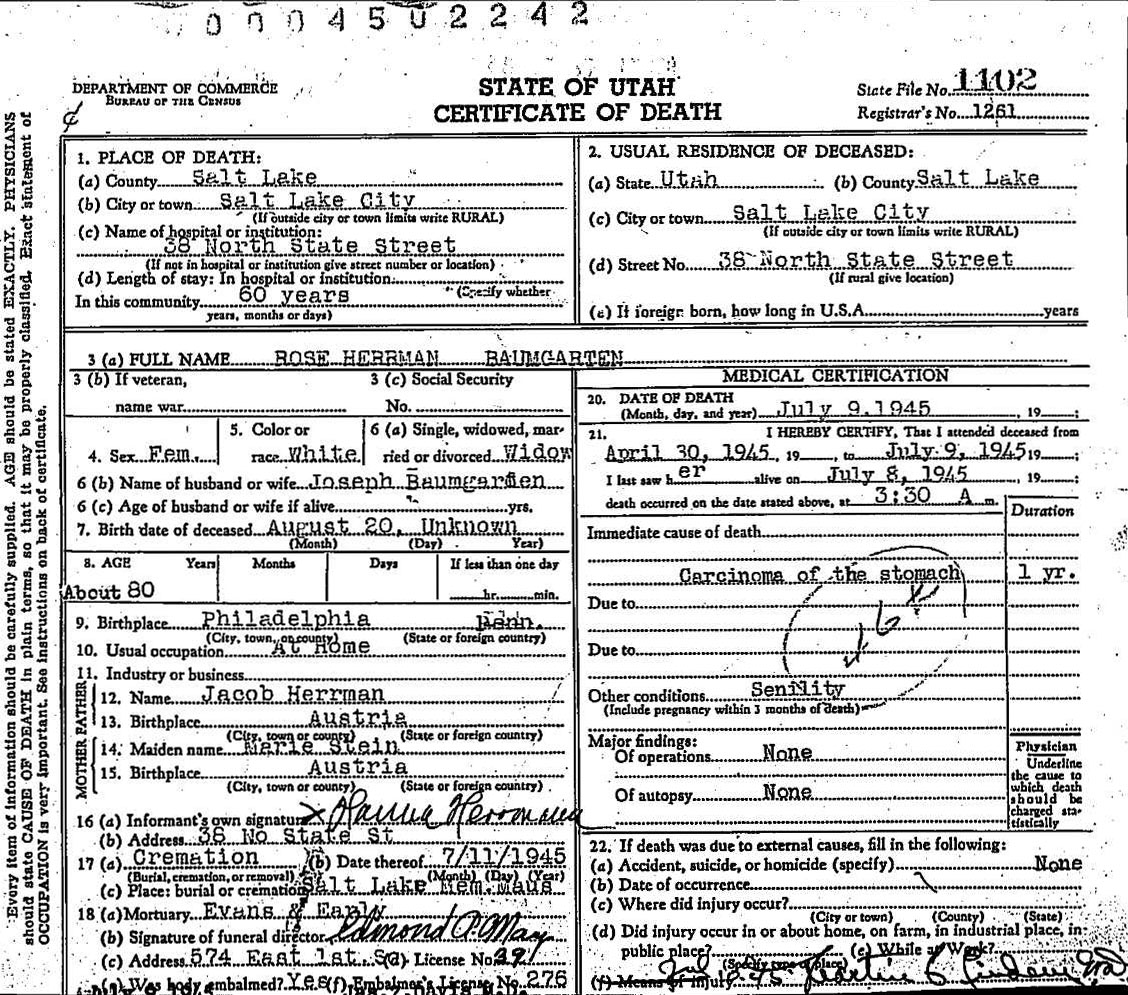 0004502242
DEPARTMENT OF COMMERCE
BUREAU OF THE CENSUS
STATE OF UTAH
CERTIFICATE OF DEATH
State File No. 1102
Registrar's No. 1261
Every item of information should be carefully supplied. AGE should be stated EXACTLY. PHYSICIANS
should state CAUSE OF DEATH in plain terms, so that it may be properly classified. Exact statement of
OCCUPATION is very important. See instructions on back of certificate.
1. PLACE OF DEATH:
(a) County Salt Lake
(b) City or town Salt Lake City
(If outside city or town limits write RURAL)
(c) Name of hospital or institution:
38 North State Street
(If not in hospital or institution give street number or location)
(d) Length of stay: In hospital or institution
(Specify whether
In this community 60 years
years, months or days)
2. USUAL RESIDENCE OF DECEASED:
(a) State Utah (b) County Salt Lake
(c) City or town Salt Lake City
(If outside city or town limits write RURAL)
(d) Street No. 38 North State Street
(If rural give location)
(e) If foreign born, how long in U.S.A. years
3 (a) FULL NAME ROSE HERRMAN BAUMGARTEN
3 (b) If veteran,
name war
3 (c) Social Security
No.
4. Sex Fem.
5. Color or
race White
6 (a) Single, widowed, mar-
ried or divorced Widow
6 (b) Name of husband or wife Joseph Baumgarten
6 (c) Age of husband or wife if alive yrs.
7. Birth date of deceased August 20, Unknown
(Month) (Day) Year)
8. AGE Years Months Days If less than one day
About 80 hr. min.
9. Birthplace Philadelphia Penn.
(City, town, or county) (State or foreign country)
10. Usual occupation At Home
11. Industry or business
FATHER
12. Name Jacob Herrman
13. Birthplace Austria
(City, town or county) (State or foreign country)
MOTHER
14. Maiden name Marie Stein
15. Birthplace Austria
(City, town or county) (State or foreign country)
16 (a) Informant's own signature x Hanna Herrmann
(b) Address 38 No State St
17 (a) Cremation (b) Date thereof 7/11/1945
(Burial, cremation, or removal) (Month) (Day) (Year)
(c) Place: burial or cremation Salt Lake Mem. Maus
18 (a) Mortuary Evans & Early
(b) Signature of funeral director Edmond A. May
(c) Address 574 East 1st. So. (d) License No. 391
(e) Was body embalmed? Yes (f) Embalmer's License No. 276
MEDICAL CERTIFICATION
20. DATE OF DEATH
(Month, day, and year) July 9.1945, 19
21. I HEREBY CERTIFY, That I attended deceased from
April 30, 1945, 19, to July 9, 1945 19
I last saw her alive on July 8, 1945, 19
death occurred on the date stated above, at 3:30 A m.
Duration
Immediate cause of death
Carcinoma of the stomach 1 yr.
Due to
Due to
Other conditions Senility
(Include pregnancy within 3 months of death)
Major findings:
Of operations None
Of autopsy None
Physician
Underline
the cause to
which death
should be
charged sta-
tistically
22. If death was due to external causes, fill in the following:
(a) Accident, suicide, or homicide (specify) None
(b) Date of occurrence
(c) Where did injury occur?
(City or town) (County) (State)
(d) Did injury occur in or about home, on farm, in industrial place, in
public place? (e) While at Work?
(Specify type of place)
(f) Means of injury